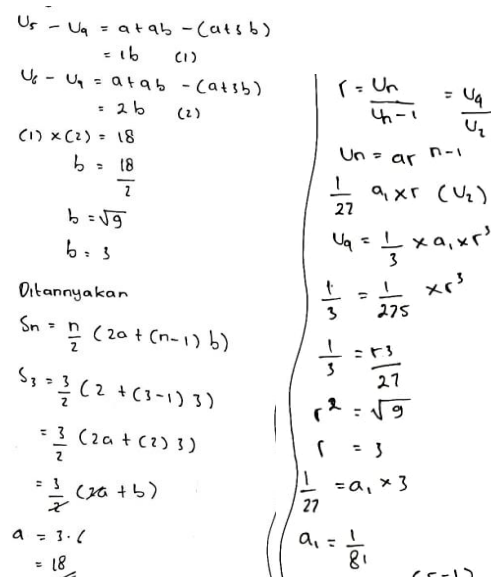 U5 - U9 = a + ab - (a+sb)
= 1b (1)
U6 - U9 = a + ab - (a+3b)
= 2b (2)
(1) x (2) = 18
b = 18/2
b = √9
b = 3
Ditannyakan
Sn = n/2 (2a + (n-1) b)
S3 = 3/2 (2 + (3-1) 3)
= 3/2 (2a + (2) 3)
= 3/2 (2a + b)
a = 3.6
= 18
r = Un/Un-1 = U4/U2
Un = ar n-1
1/27 a1 x r (U2)
U9 = 1/3 x a1 x r³
1/3 = 1/275 x r³
1/3 = r3/27
r² = √9
r = 3
1/27 = a1 x 3
a1 = 1/81